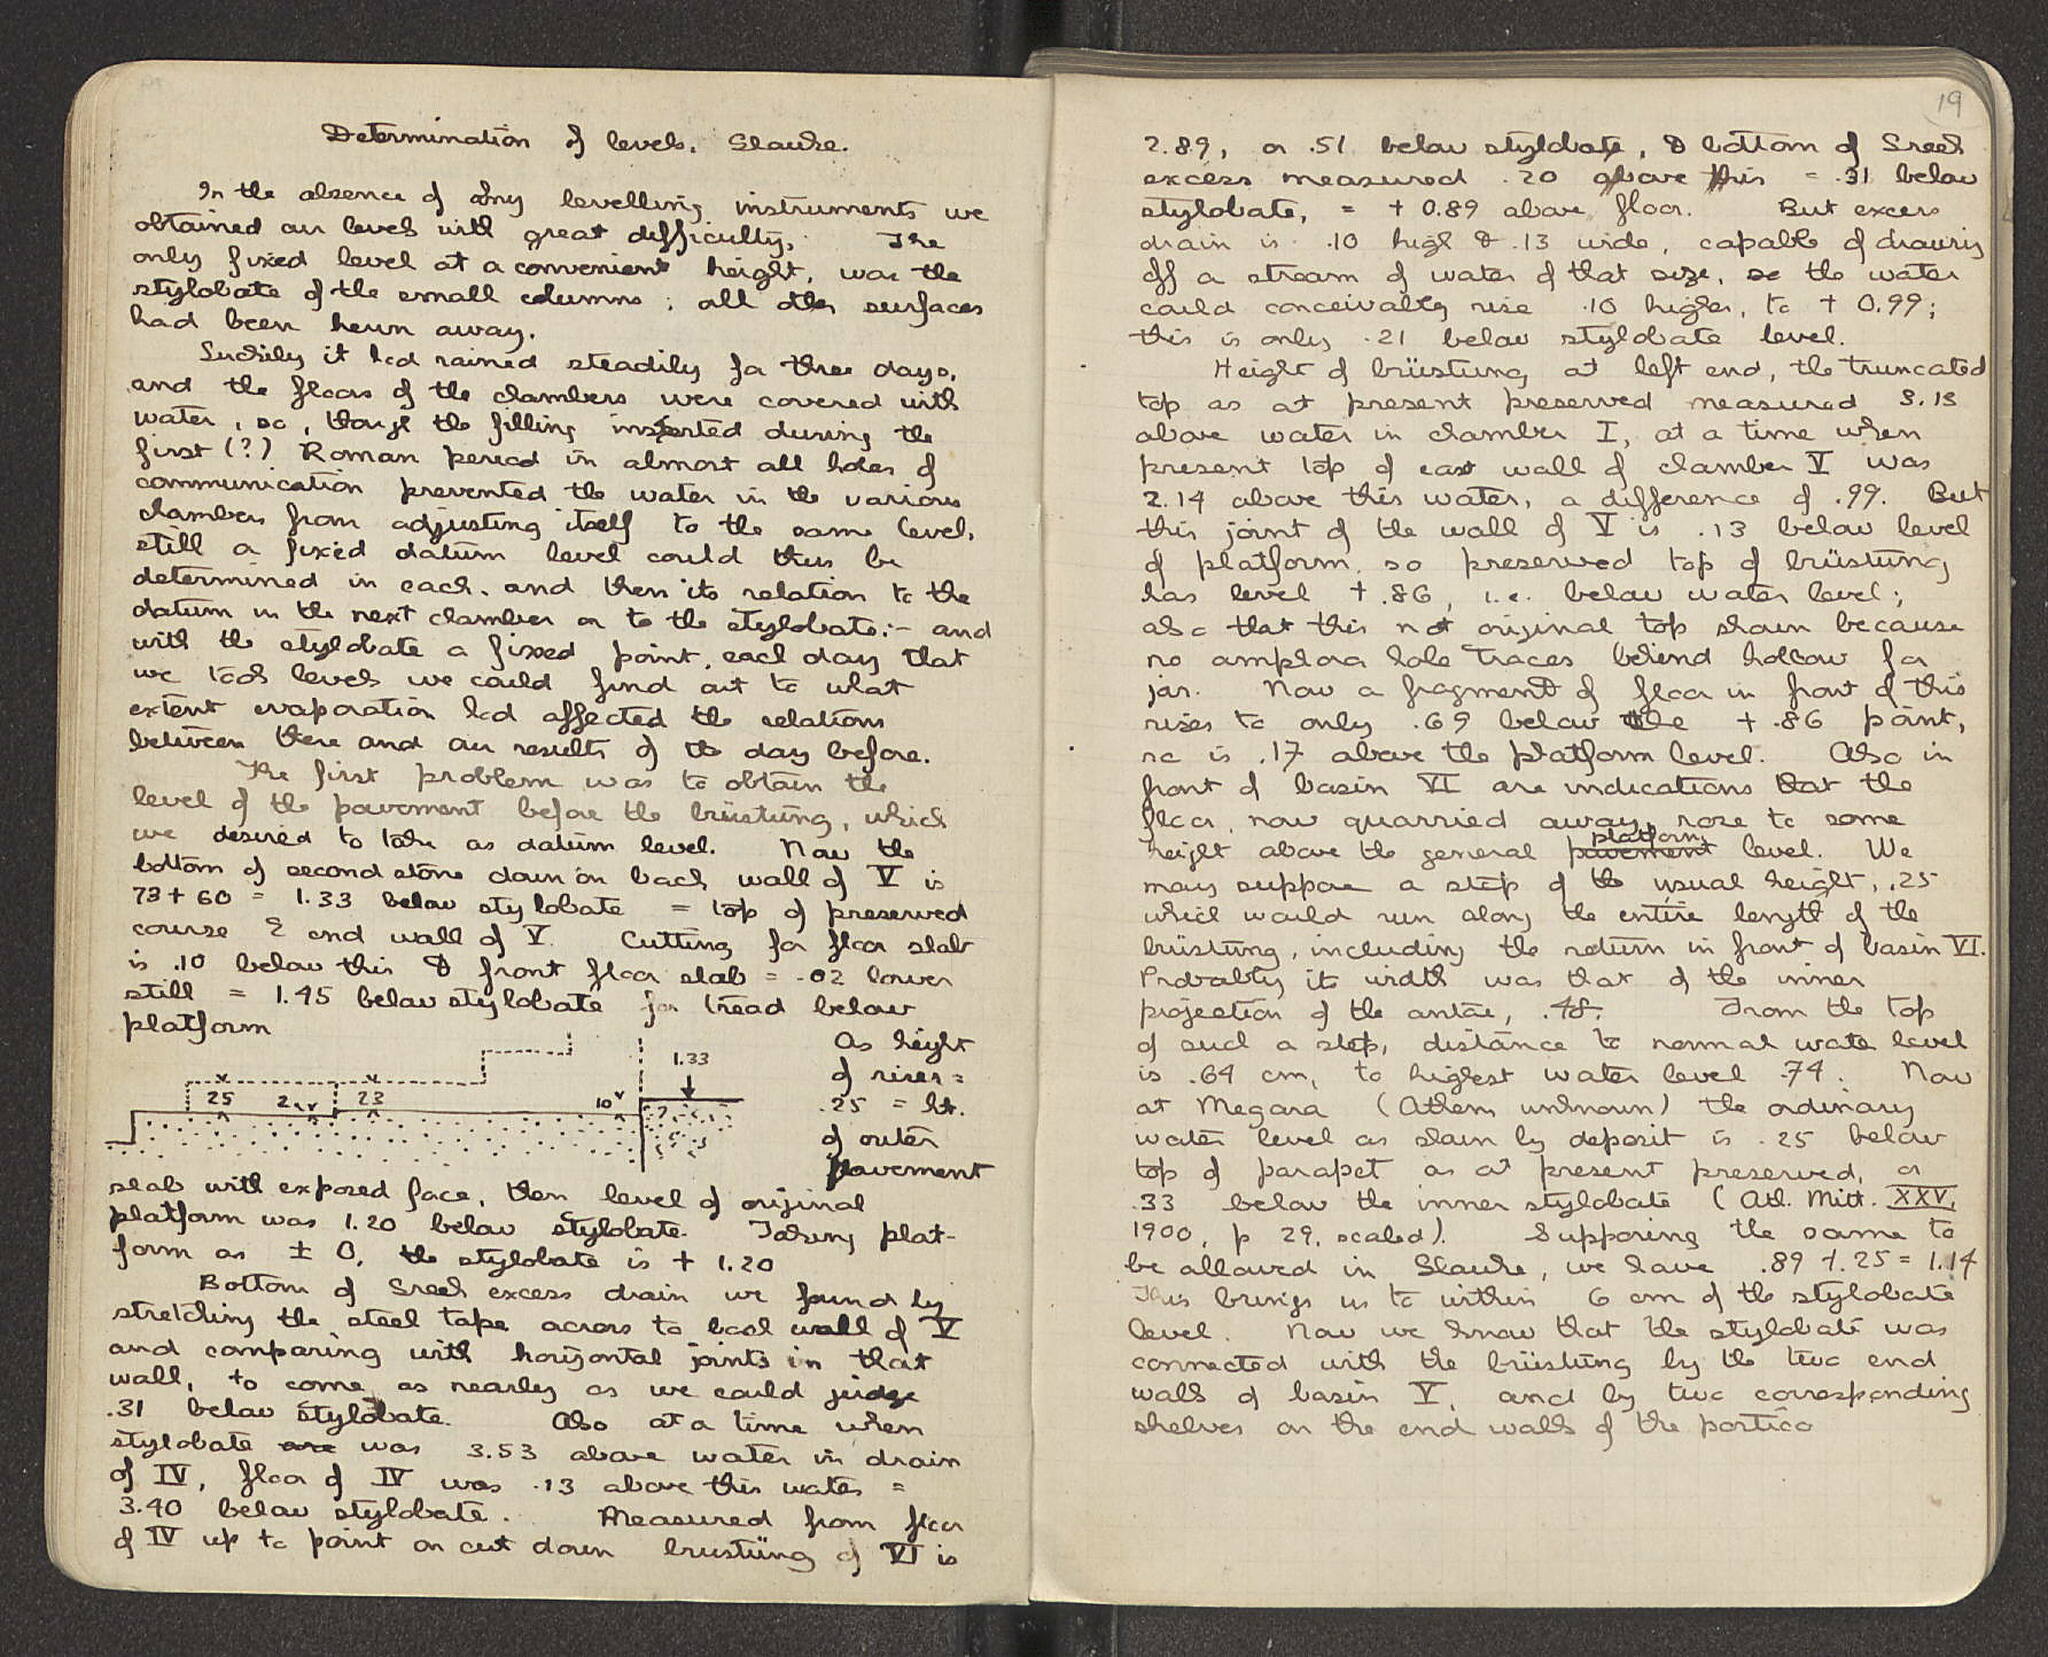 Determination of levels, Glauke.
In the absence of any levelling instruments we
obtained our levels with great difficulty. The
only fixed level at a convenient height, was the
stylobate of the small columns; all other surfaces
had been hewn away.
Luckily it had rained steadily for three days,
and the floors of the chambers were covered with
water, so, though the filling inserted during the
first (?) Roman period in almost all holes of
communication prevented the water in the various
chambers from adjusting itself to the same level,
still a fixed datum level could thus be
determined in each, and then its relation to the
datum in the next chamber or to the stylobate:- and
with the stylobate a fixed point, each day that
we took levels we could find out to what
extent evaporation had affected the relations
between these and our results of the day before.
The first problem was to obtain the
level of the pavement before the brüstung, which
we desired to take as datum level. Now the
bottom of second stone down on back wall of V is
73 + 60 = 1.33 below stylobate = top of preserved
course E end wall of V. Cutting for floor slab
is .10 below this & front floor slab = .02 lower
still = 1.45 below stylobate for tread below
platform
As height
of riser =
.25 = ht.
of outer
pavement
1.33
25 2 23 10
slab with exposed face, then level of original
platform was 1.20 below stylobate. Taking plat-
form as ± 0, the stylobate is + 1.20
Bottom of Greek excess drain we found by
stretching the steel tape across to back wall of V
and comparing with horizontal joints in that
wall, to come as nearly as we could judge
.31 below stylobate. Also at a time when
stylobate are was 3.53 above water in drain
of IV, floor of IV was .13 above this water =
3.40 below stylobate. Measured from floor
of IV up to point on cut down brüstung of VI is
19
2.89, or .51 below stylobate, & bottom of Greek
excess measured .20 above this = .31 below
stylobate, = + 0.89 above floor. But excess
drain is .10 high & .13 wide, capable of drawing
off a stream of water of that size, so the water
could conceivably rise .10 higher, to + 0.99;
this is only .21 below stylobate level.
Height of brüstung at left end, the truncated
top as at present preserved measured 3.13
above water in chamber I, at a time when
present top of east wall of chamber V was
2.14 above this water, a difference of .99. But
this joint of the wall of V is .13 below level
of platform, so preserved top of brüstung
has level + .86, i.e. below water level;
also that this not original top shown because
no amphora hole traces behind hollow for
jar. Now a fragment of floor in front of this
rises to only .69 below the + .86 point,
so is .17 above the platform level. Also in
front of basin VI are indications that the
floor, now quarried away, rose to some
height above the general pavement platform level. We
may suppose a step of the usual height, .25
which would run along the entire length of the
brüstung, including the return in front of basin VI.
Probably its width was that of the inner
projection of the antae, .48. From the top
of such a step, distance to normal water level
is .64 cm, to highest water level .74. Now
at Megara (Athens unknown) the ordinary
water level as shown by deposit is .25 below
top of parapet as at present preserved, or
.33 below the inner stylobate (Ath. Mitt. XXV,
1900, p 29, scaled). Supposing the same to
be allowed in Glauke, we have .89 + .25 = 1.14
This brings us to within 6 cm of the stylobate
level. Now we know that the stylobate was
connected with the brüstung by the two end
walls of basin V, and by two corresponding
shelves on the end walls of the portico